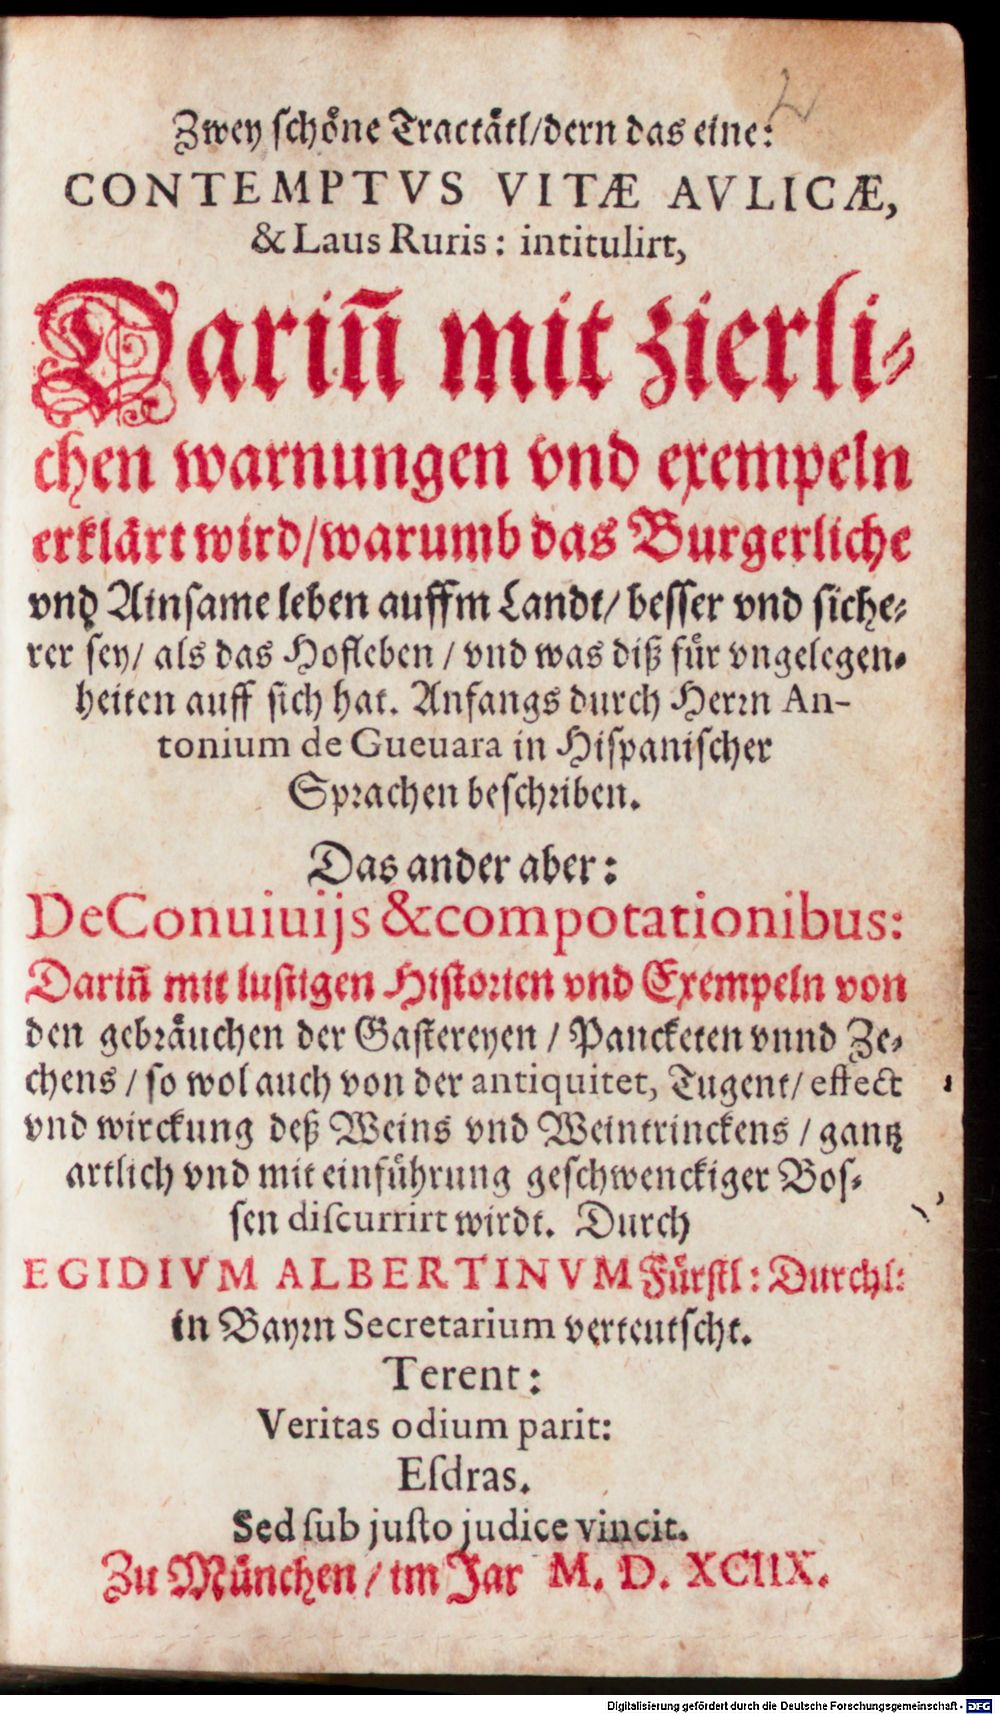 Zwey ſchoͤne Tractaͤtl/dern das eine:
CONTEMPTVS VITÆ AVLICÆ,
& Laus Ruris: intitulirt,
Dariñ mit zierli⸗
chen warnungen vnd exempeln
erklaͤrt wird/warumb das Burgerliche
vnd Ainſame leben auffm Landt/ beſſer vnd ſiche⸗
rer ſey/ als das Hofleben / vnd was diß fuͤr vngelegen⸗
heiten auff ſich hat. Anfangs durch Herꝛn An-
tonium de Gueuara in Hiſpaniſcher
Spꝛachen beſchꝛiben.
Das ander aber:
De Conuiuijs & compotationibus:
Dariñ mit luſtigen Hiſtoꝛien vnd Exempeln von
den gebꝛaͤuchen der Gaſtereyen / Pancketen vnnd Ze⸗
chens / ſo wol auch von der antiquitet, Tugent/ effect
vnd wirckung deß Weins vnd Weintrinckens / gantz
artlich vnd mit einfuͤhrung geſchwenckiger Boſ⸗
ſen diſcurrirt wirdt. Durch
EGIDIVM ALBERTINVM Fuͤrſtl: Durchl:
in Bayꝛn Secretarium verteutſcht.
Terent:
Veritas odium parit:
Eſdras.
Sed ſub juſto judice vincit.
Zu Muͤnchen / im Jar M. D. XCIIX.
Digitalisierung gefördert durch die Deutsche Forschungsgemeinschaft - DFG